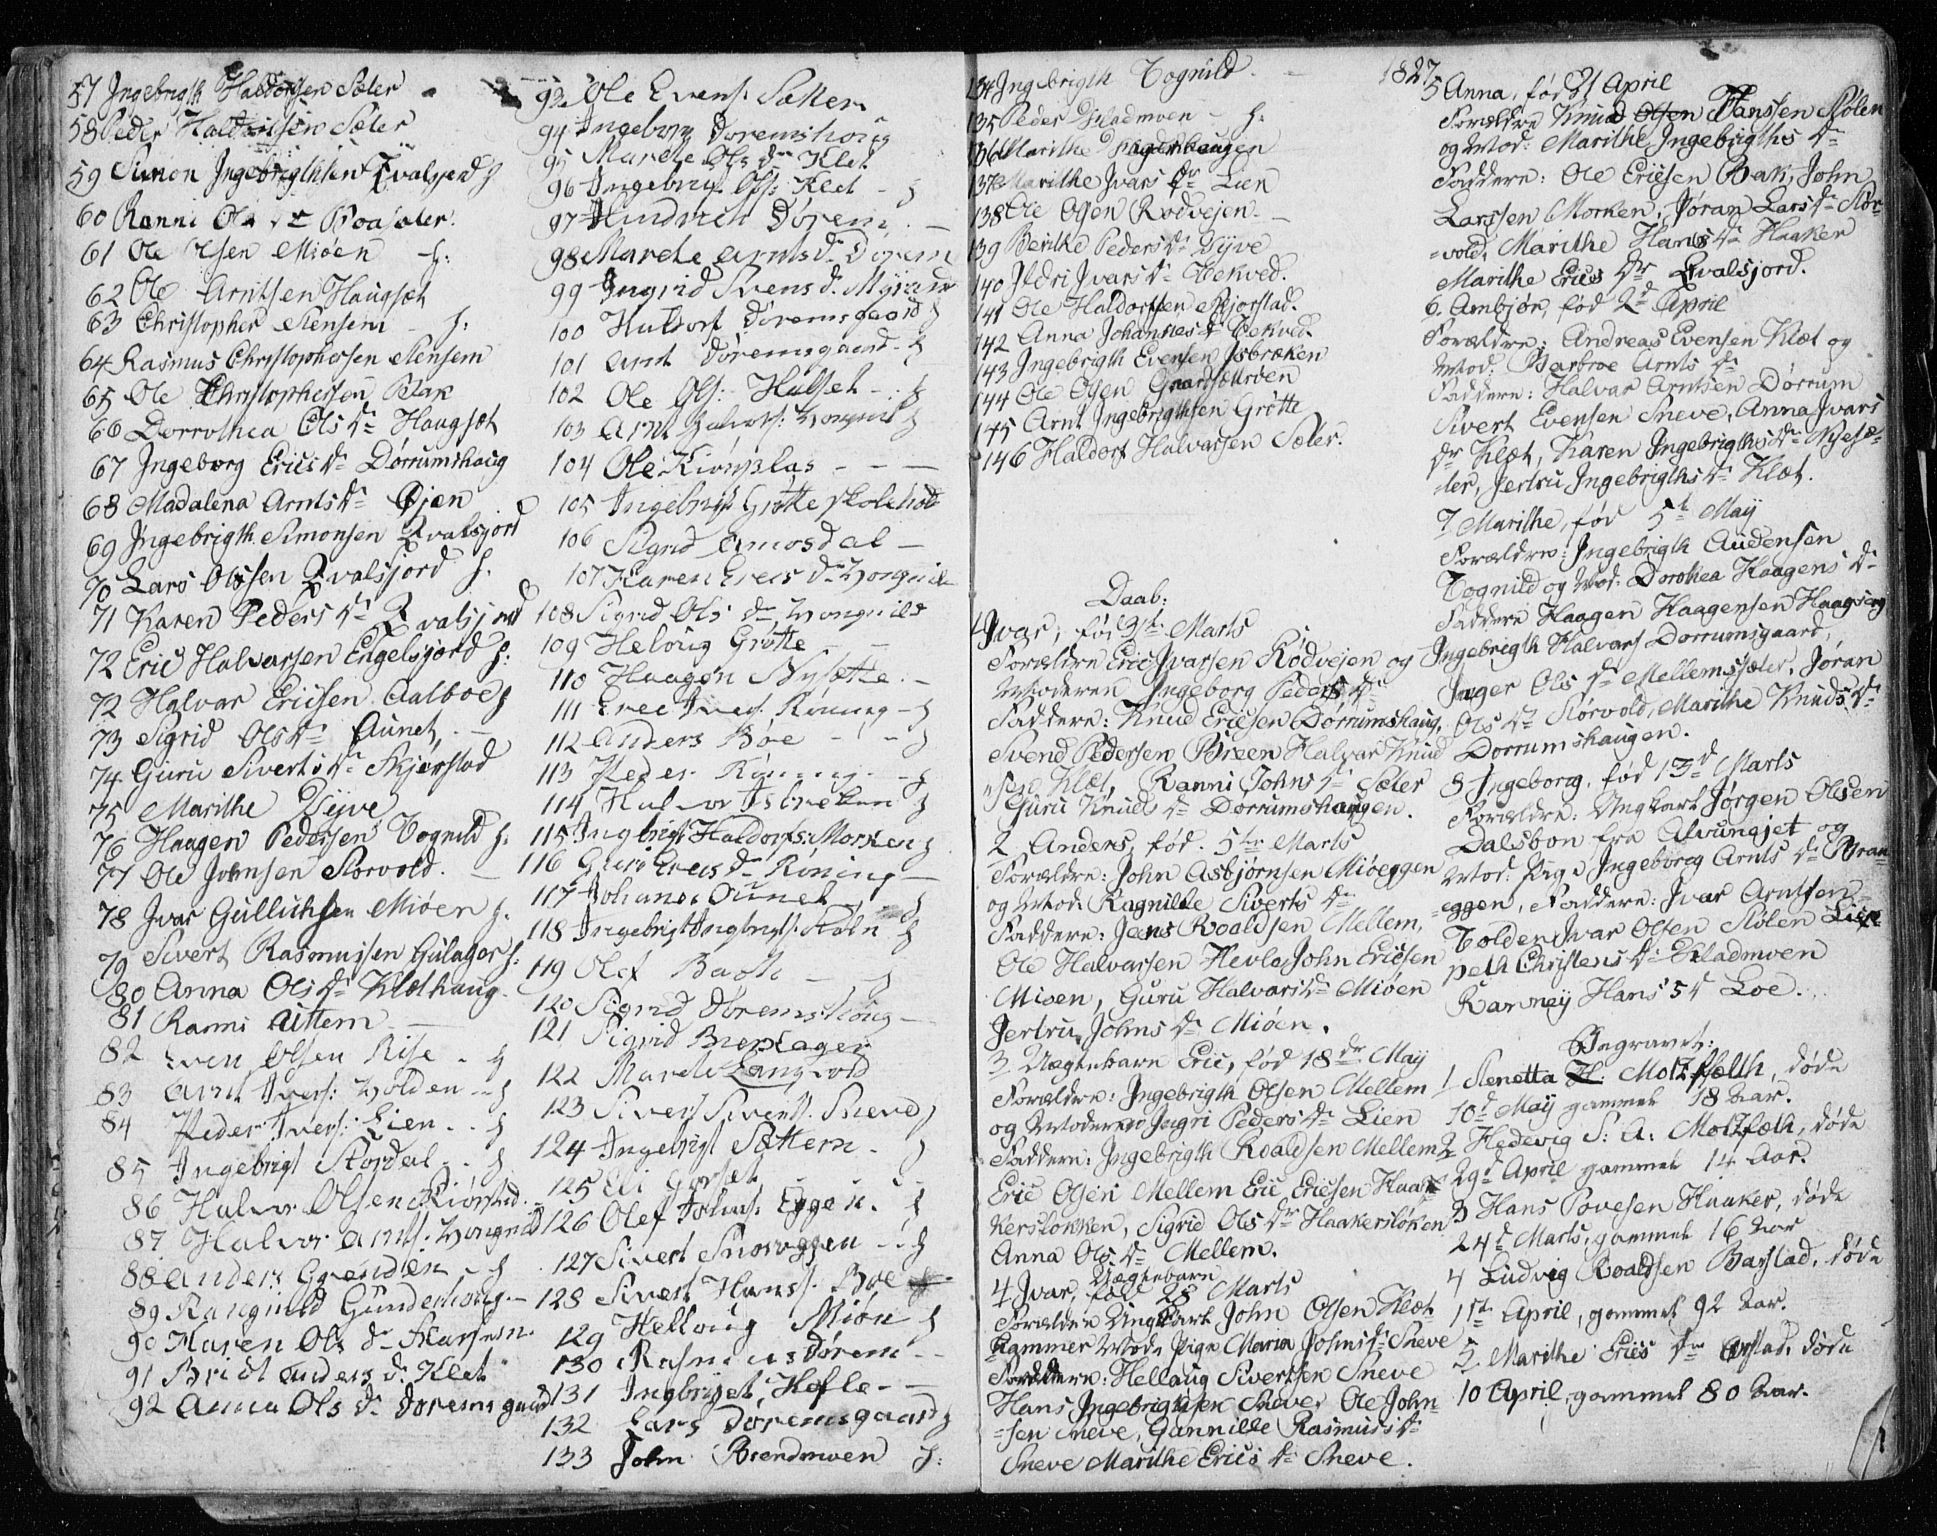 57 Ingebrigth Haldorsen Sæter
58 Peder Haldorsen Sæter
59 Simon Ingebrigthsen Qvalsjord h
60 Ranni Ols Dr Boasæter
61 Ole Olsen Miøen h:
62 Ole Arntsen Haugsæt
63 Christopher Stensem h:
64 Rasmus Christophersen Stensem
65 Ole Christophersen Bak
66 Dorrothea Ols Dr Haugsæt
67 Ingeborg Erics Dr Dørrumshaug
68 Madalena Arnts Dr Øjen
69 Ingebrigth Simonsen Qvalsjord
70 Lars Olsen Qvalsjord h.
71 Karen Peders Dr Qvalsjord
72 Eric Halvarsen Engelsjord h:
72 Halvar Ericsen Aalboe h
73 Sigrid Ols Dr Aunet
74 Guru Siverts Dr Skjørstad
75 Marithe Vijve
76 Haagen Pedersen Vognild h.
77 Ole Johnsen Storvold.
78 Ivar Gullichsen Miøen h.
79 Sivert Rasmussen Gulager h.
80 Anna Ols Dr Klæthaug
81 Ranni Aittem
82 Even Olsen Rise h
83 Arnt Ivers: Volden h
84 Peder Ivers: Lien h
85 Ingebrigt Stordal h
86 Halvor Olsen Skiørstad
87 Halvor Arnts: Vongnild
88 Anders Grenden h
89 Rangnild Gunderhoug
90 Maren Ols Dr
91 Bridt Anders Dr Klet
92 Anna Ols Dr Doremsgaard
93 Ole Evens: Sætter
94 Ingeborg Doremshoug
95 Marete Ols Dr Klet
96 Ingebrigt Ols: Klet h
97 Hindrich Dørem
98 Marete Arnts Dr Dorem
99 Ingrid Svens Dr
100 Haldorf Doremsgaard h
101 Arnt Doremsgaard h
102 Ole Ols: Halset h
103 Arnt Vongnild h
104 Ole Kiønplas
105 Ingebrigt Grøtte skoleh
106 Sigrid Amosdal
107 Karen Erecs Dr Vongnild
108 Sigrid Ols Dr Vongnild
109 Helvig Grøtte
110 Haagen Nysætte
111 Erec Ivers: Røning h
112 Anders Boe h
113 Peder Røning h
114 Halvor Isbrecken h
115 Ingbrigt Haldorfs: Morken h
116 Guri Erecs Dr Røning
117 Johanes Ounet h
118 Ingebrigt Ingbrigts: h
119 Olef Bach h
120 Sigrid Doremshoug
121 Sigrid Brenlager
122 Marete Langvold
123 Siver Siverts: Sneve h
124 Ingebrigt Sættern h
125 Eli Gorset
126 Olef Johns: Eggen h
127 Sivert Snoeggen h
128 Sivert Hanss: Boe
129 Hellvig Miøn h
130 Rasmus Dørem
131 Ingbriget Hefle
132 Lars Doremsgaard h
133 John Brendmoen h:
134 Ingebrigth Vognild.
135 Peder Vladmoen h.
136 Marithe
137 Marithe Ivars Dr Lien
138 Ole Olsen Rødvejen.
139 Berithe Peders Dr Vijve
140 Ildri Ivars Dr Vekved.
141 Ole Haldorssen Skjorstad.
142 Anna Johannes Dr Vekved.
143 Ingebrigth Evensen Isbræken
144 Ole Olsen
145 Arnt Ingebrigthsen Grøtte
146 Haldorf Halvarsen Sæter.
Daab:
1 Ivar, fød 9de Marts
Forældre Eric Ivarsen Rødvejen og
Moderen Ingeborg Peders Dr
Faddere: Knud Ericsen Dørrumshaug,
Svend Pedersen Breen Halvar Knud
=sen Klæt, Ranni Johns Dr Sæter
Guru Knuds Dr Dorrumshaugen.
2. Anders, fød. 5te Marts
Forældre: John Asbjørnsen Miøeggen
og Mod: Ragnilde Siverts Dr
Faddere: Jens Roaldsen Mellem,
Ole Halvarsen Hevle, John Ericsen
Miøen, Guru Halvars Dr Miøen
Jertru Johns Dr Miøen.
3. Uægtebarn Eric, fød 18de May
Forældre: Ingebrigth Olsen Mellem
og Moderen Ingri Peders Dr Lien
Faddere: Ingebrigth Roaldsen Mellem
Eric Olsen Mellem Eric Ericsen Haa
kersløkken, Sigrid Ols Dr Haakersløken
Anna Ols Dr Mellem.
Uægtebarn
4 Ivar, fød 28 Marts
Forældre Ungkarl John Olsen Klæt
hammer Mod: Pige Maria Johns Dr Sneve
Faddere: Hellaug Sivertsen Sneve
Hans Ingebrigthsen Sneve, Ole John=
=sen Sneve, Gunnilde Rasmus Dr
Sneve Marithe Erics Dr Sneve.
1827
5 Anna, fød 21 April
Forældre Knud Olsen Hanssen Stølen
og Mod: Marithe Ingebrigths Dr
Faddere: Ole Ericsen Bak, John
Larssen Morken, Jøran Lars Dr Stor=
=vold, Marithe Hans Dr Haaker
Marithe Erics Dr Qvalsjord.
6. Ambjør, fød 2d April
Forældre: Andreas Evensen Klæt og
Mod: Barbroe Arnts Dr
Faddere: Halvar Arntsen Dørrum
Sivert Evensen Sneve, Anna Ivars
Dr Klæt, Karen Ingebrigths Dr Nysæ=
ter, Jertru Ingebrigths Dr Klæt.
7 Marithe, fød 5te May
Forældre: Ingebrigth Audensen
Vognild og Mod: Dorothea Haagens Dr
Faddere Haagen Haagensen Haagsæg
Ingebrigth Halvars Dorrumsgaard,
Inger Ols Dr Mellemsæter, Jøran
Ols Dr Storvold, Marithe Knuds Dr
Dorrumshaugen.
8 Ingeborg, fød 13d Marts
Forældre: Ungkarl Jørgen Olsen
Dalsbon fra Alvungjet og
Mod: Pige Ingeborg Arnts Dr Bran=
=eggen, Faddere: Ivar Arntsen
Volden Ivar Olsen Stølen Lise
peth Christens Dr Vladmoen
Karney Hans Dr Loe.
Begravet:
1 Stenetta H. Moltzfeldth, døde
10d May gammel 18 Aar.
2 Hedevig S: A: Moltzfelth, døde
29d April gammel 14 Aar.
3 Hans Povesen Haaker, døde
24d Marts, gammel 16 Aar
4 Ludvig Roaldsen Barstad, døde
1ste April, gammel 92 Aar.
5. Marithe Erics Dr døde
10 April, gammel 80 Aar.